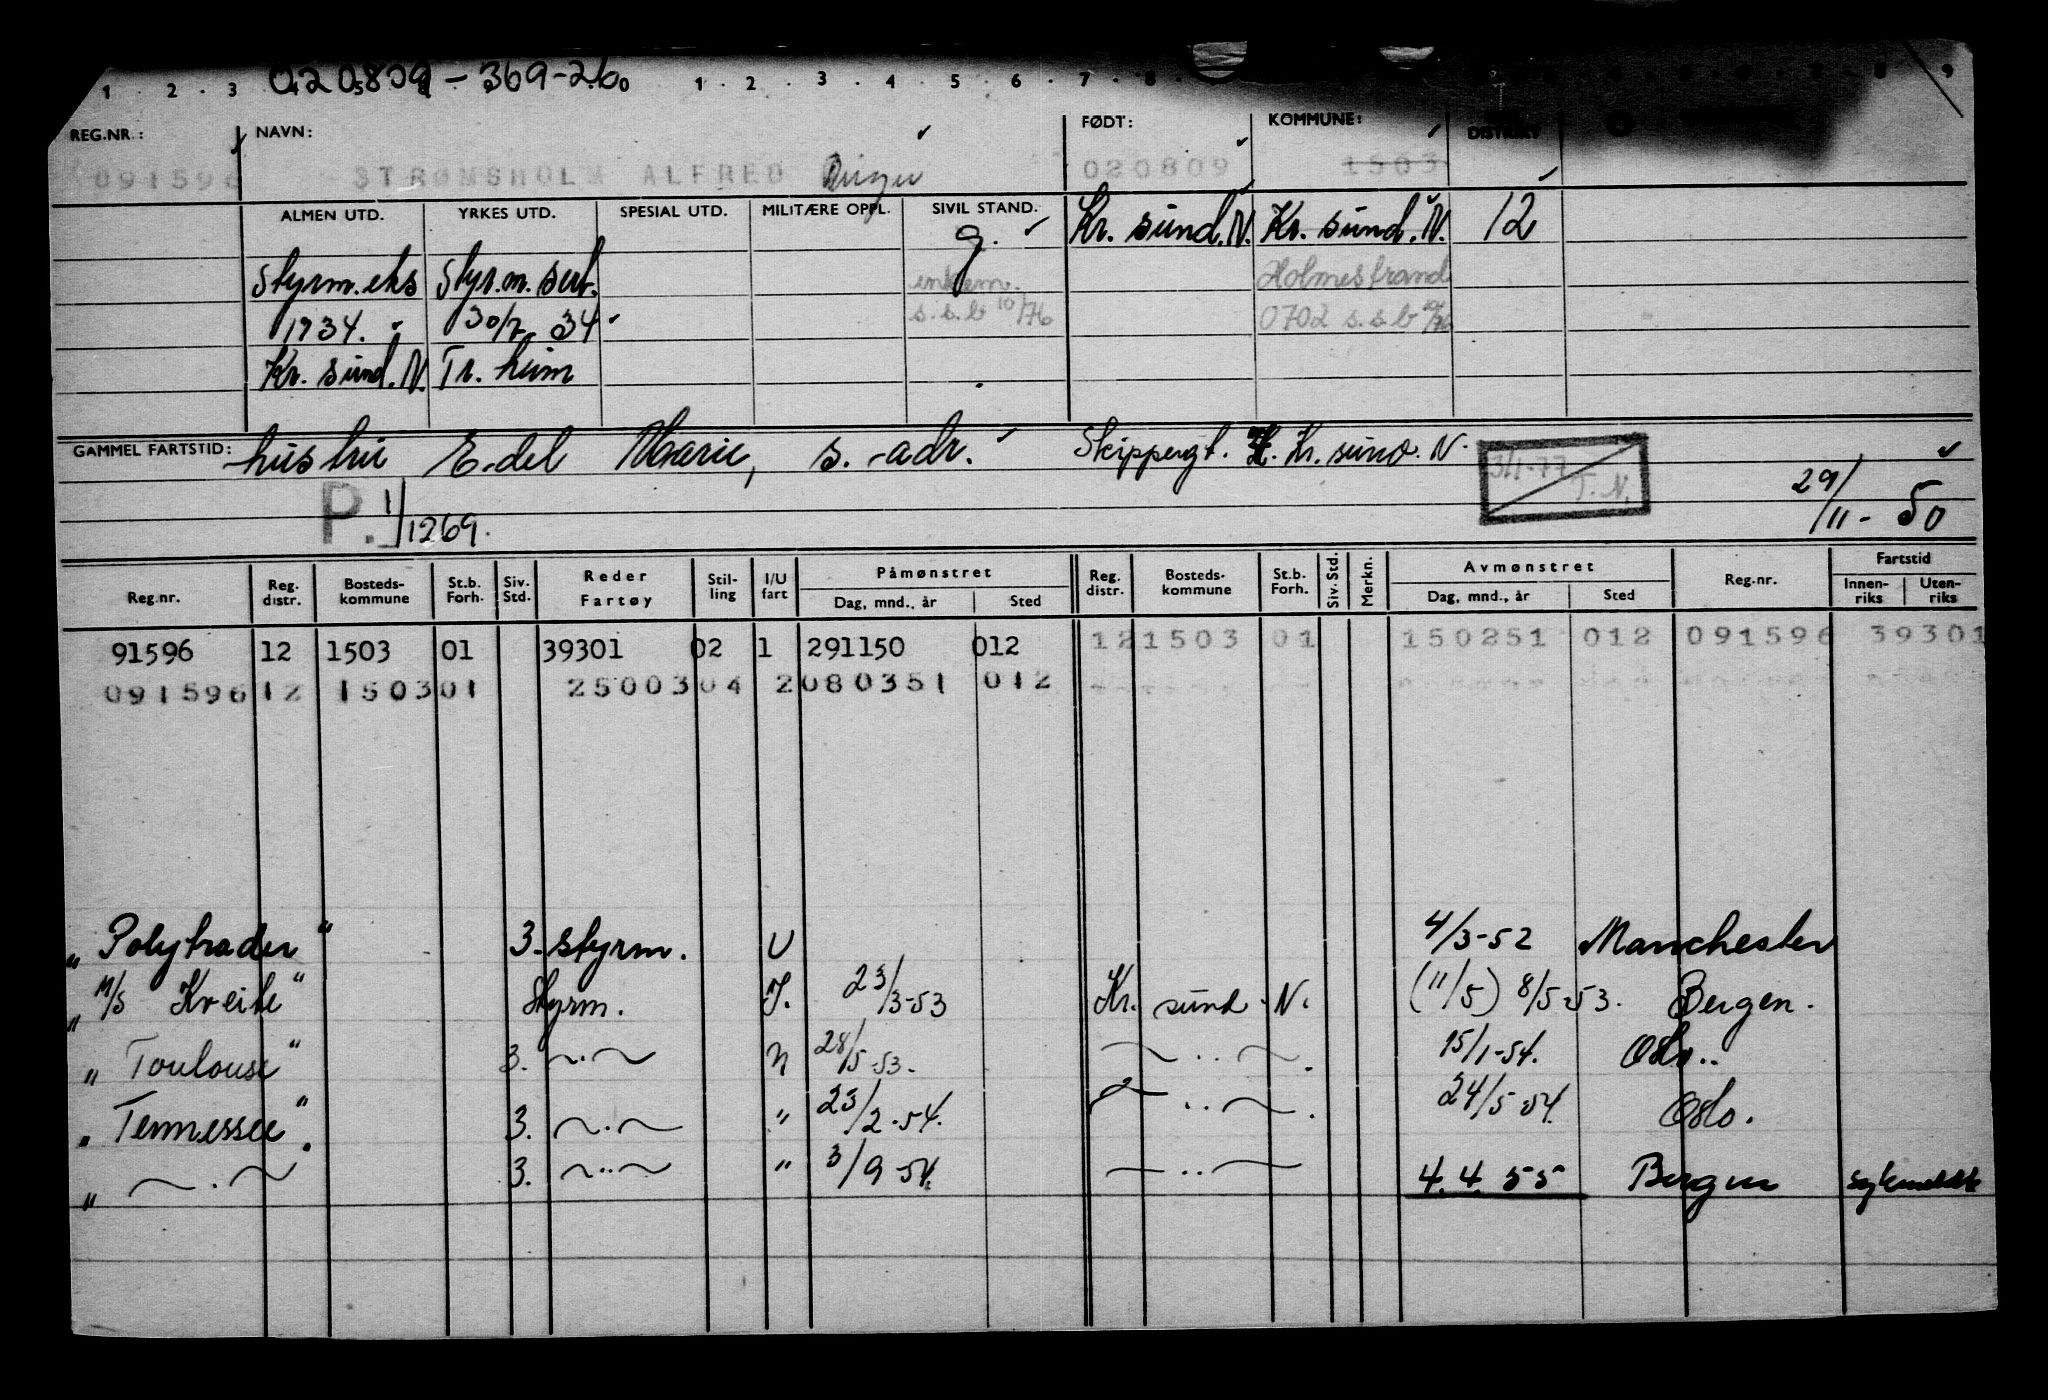 020809-369-26
1 . 2 . 3 0 1 . 2 . 3 . 4 . 5 . 6 . 7 . 8 8 9
REG.NR.: NAVN: FØDT: KOMMUNE: DISTRIKT
091596 STRØMSHOLM ALFRED Birger 020809 1503
ALMEN UTD. YRKES UTD. SPESIAL UTD. MILITÆRE OPPL. SIVIL STAND. Kr. sund. N. Kr. sund. N. 12
g.
Styrm.eks Styr.m. sert. enkem. Holmestrand
1934. 30/7 34 s.s.b 10/76 0702 s.s.b 10/76
Kr. sund. N. Tr. heim
GAMMEL FARTSTID: hustru Edel Marie, s.-adr. Skippergt. Kr. sund. N.
3/1-77 T.N.
29/11-50
P. 1/1269.
Reg.nr. Reg. distr. Bosteds- kommune St.b. Forh. Siv. Std. Reder Fartøy Stil- ling I/U fart Påmønstret Dag, mnd., år Sted Reg. distr. Bosteds- kommune St.b. Forh. Siv. Std. Merkn. Avmønstret Dag, mnd., år Sted Reg.nr. Fartstid Innen- riks Uten- riks
91596 12 1503 01 39301 02 1 291150 012 12 1503 01 150251 012 091596 39301
091596 12 1503 01 25003 04 2 080351 012
"Polytrader" 3. styrm. U 4/3-52 Manchester
"M/S Kreite" Styrm. I. 23/3-53 Kr. sund. N. (11/5) 8/5-53. Bergen.
"Toulouse" 3. ~.~ U 28/5-53. ~ .. ~. 15/1-54. Oslo..
"Tennessee". 3. ~.~ " 23/2-54. ~ .. ~. 24/5-54. Oslo.
" ~ . ~ 3. ~..~ " 3/9-54. ~ .. ~ 4.4.55 Bergen sykmeldt